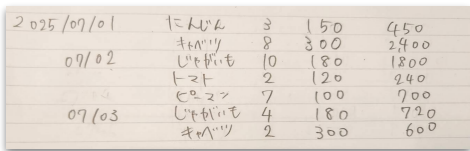 2025/07/01 にんじん 3 150 450
キャベツ 8 300 2,400
07/02 じゃがいも 10 180 1800
トマト 2 120 240
ピーマン 7 100 700
07/03 じゃがいも 4 180 720
キャベツ 2 300 600